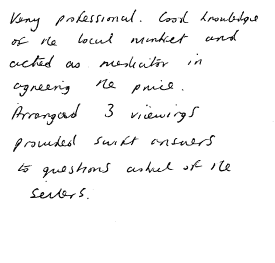 Very professional. Good knowledge
of the local market and
acted as mediator in
agreeing the price.
Arranged 3 viewings
provided swift answers
to questions asked of the
sellers.